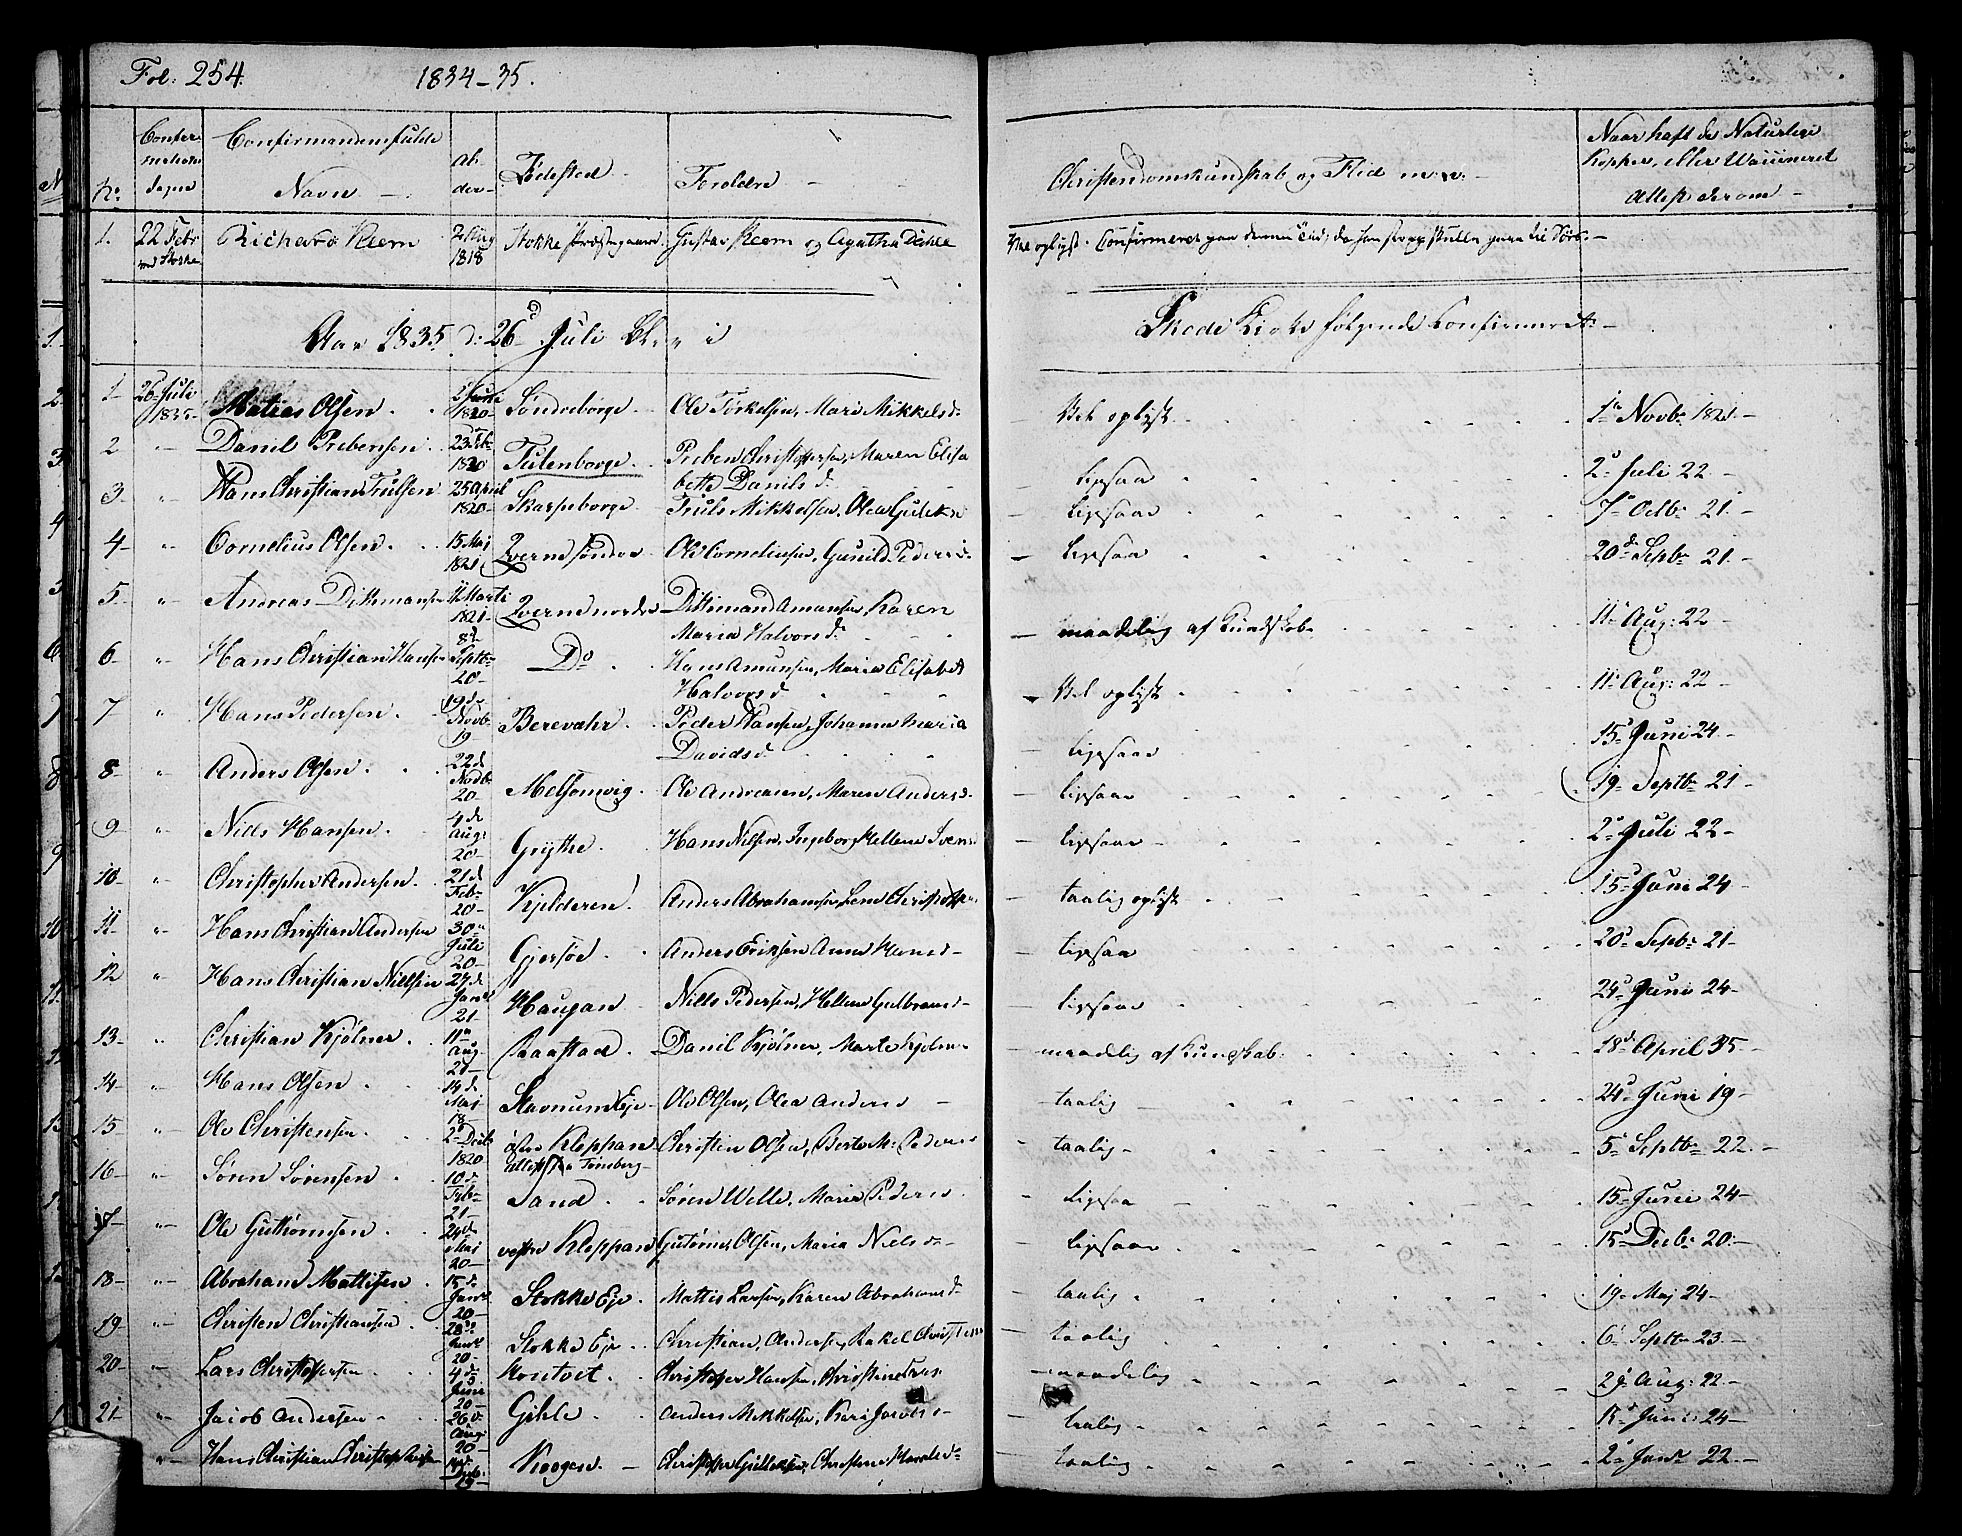 Fol: 254. 1834-35.
No Confirmations dagen Confirmandens fulde Navn Alder Födested Forældre Christendomskundskab og Flid m.v. Naar haft de Naturlige Kopper, eller Vaccineret Attest derom
1. 22 Febr ved Stokke Richard Reem 2 Aug 1818 Stokke Præstegaard Gustav Reem og Agatha Dehle Vel oplyst. Confirmeret paa denne Tid, da han skulle
Aar 1835 d: 26d Juli Bl. " i Skode Kirke følgende Confirmeret
1 26 Juli 1835 Matias Olsen 1820 Söndreborge Ole Torkelsen, Mari Mikkelsd. Vel oplyst 1 Novbr 1821
2 " Danil Prebensen 23 Feb 1820 Tutenborge Preben Christoffersen, Maren Elisabethe Danilsd. ligesaa 2 Juli 22
3 " Hans Christian Trulsen 25 April 1820 Skarpeborge Truls Mikkelsen, Olea Guliksd ligesaa 7 Octbr 21
4 " Cornelius Olsen 15 Maj 1821 Qverne söndre Ole Corneliusen, Gunild Pedersd. ligesaa 20d Septbr 21
5 " Andreas Dittmansen 11 Marti 1821 Qverne nordre Dittmand Amansen, Karen Maria Halvorsd. maadelig af Kundskab 11 Aug: 22
6 " Hans Christian Hansen 8d Septbr 20 Do Hans Amunsen, Maria Elisabet Halvorsd Vel oplyst 11 Aug: 22
7 " Hans Pedersen 19d Novbr 19 Berevahr Peder Hansen, Johanna Maria Davidsd ligesaa 15 Juni 24
8 " Anders Olsen 22d Novbr 20 Melsomvig Ole Andreasen, Maren Andersd. ligesaa 19 Septbr 21
9 " Niels Hansen 4d Aug: 20 Grythe Hans Nilsen, Ingeborg Hellene Svens ligesaa 2 Juli 22
10 " Christopher Andersen 21d Feb 20 Kjelderen Anders Abrahamsen, Lene Christoffers taalig oplyst 15 Juni 24
11 " Hans Christian Andersen 30 Juli 20 Gjersöe Anders Eriksen Anne Hansd ligesaa 20 Septbr 21
12 " Hans Christian Nielsen 27d Janr 21 Haugan Niels Pedersen, Hellene Gulbransd ligesaa 24 Juni 24
13 " Christian Kjölner 11 Aug 21 Raastad Danil Kjölner, Marte Kjölner maadelig af Kunskab 18d April 35
14 " Hans Olsen 14d Maj 18 Stavnum Eje Ole Olsen, Olea Anders taalig 24 Juni 19
15 " Ole Christensen 2 Decb 1820 östre Kleppan Attest fra Tönsberg Christen Olsen, Berte M: Peders taalig 5 Septbr 22
16 " Sören Sörensen 10d Febr 21 Sand Sören Welle, Maria Peders ligesaa 15 Juni 24
17 " Ole Guttormsen 24d Maj 20 vestre Kleppan Gutorm Olsen, Maria Nielsd ligesaa 15 Decbr 20
18 " Abraham Mattisen 15d Janr 20 Stokke Eje Mattis Larsen, Karen Abrahamsd taalig 19 Maj 24
19 " Christen Christiansen 28d Janr 20 Stokke Eje Christian Andersen, Rakel Christens taalig 6 Septbr 23
20 " Lars Christoffersen 4d Juni 20 Rontvet Christoffer Hansen, Christine maadelig 29 Aug: 22
21 " Jacob Andersen 26d Aug: 20 Gihle Anders Mikkelsen, Kari Jacobs taalig 15 Juni 24
" Hans Christian Christoffersen Kroogen Christoffer Gulliksen, Christine taalig 2 Janr 22